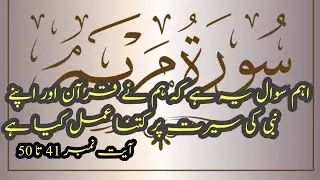 سُورَةُ مَرْيَم
اہم سوال یہ ہے کہ ہم نے قرآن اور اپنے
نبی کی سیرت پر کتنا عمل کیا ہے
آیت نمبر 41 تا 50